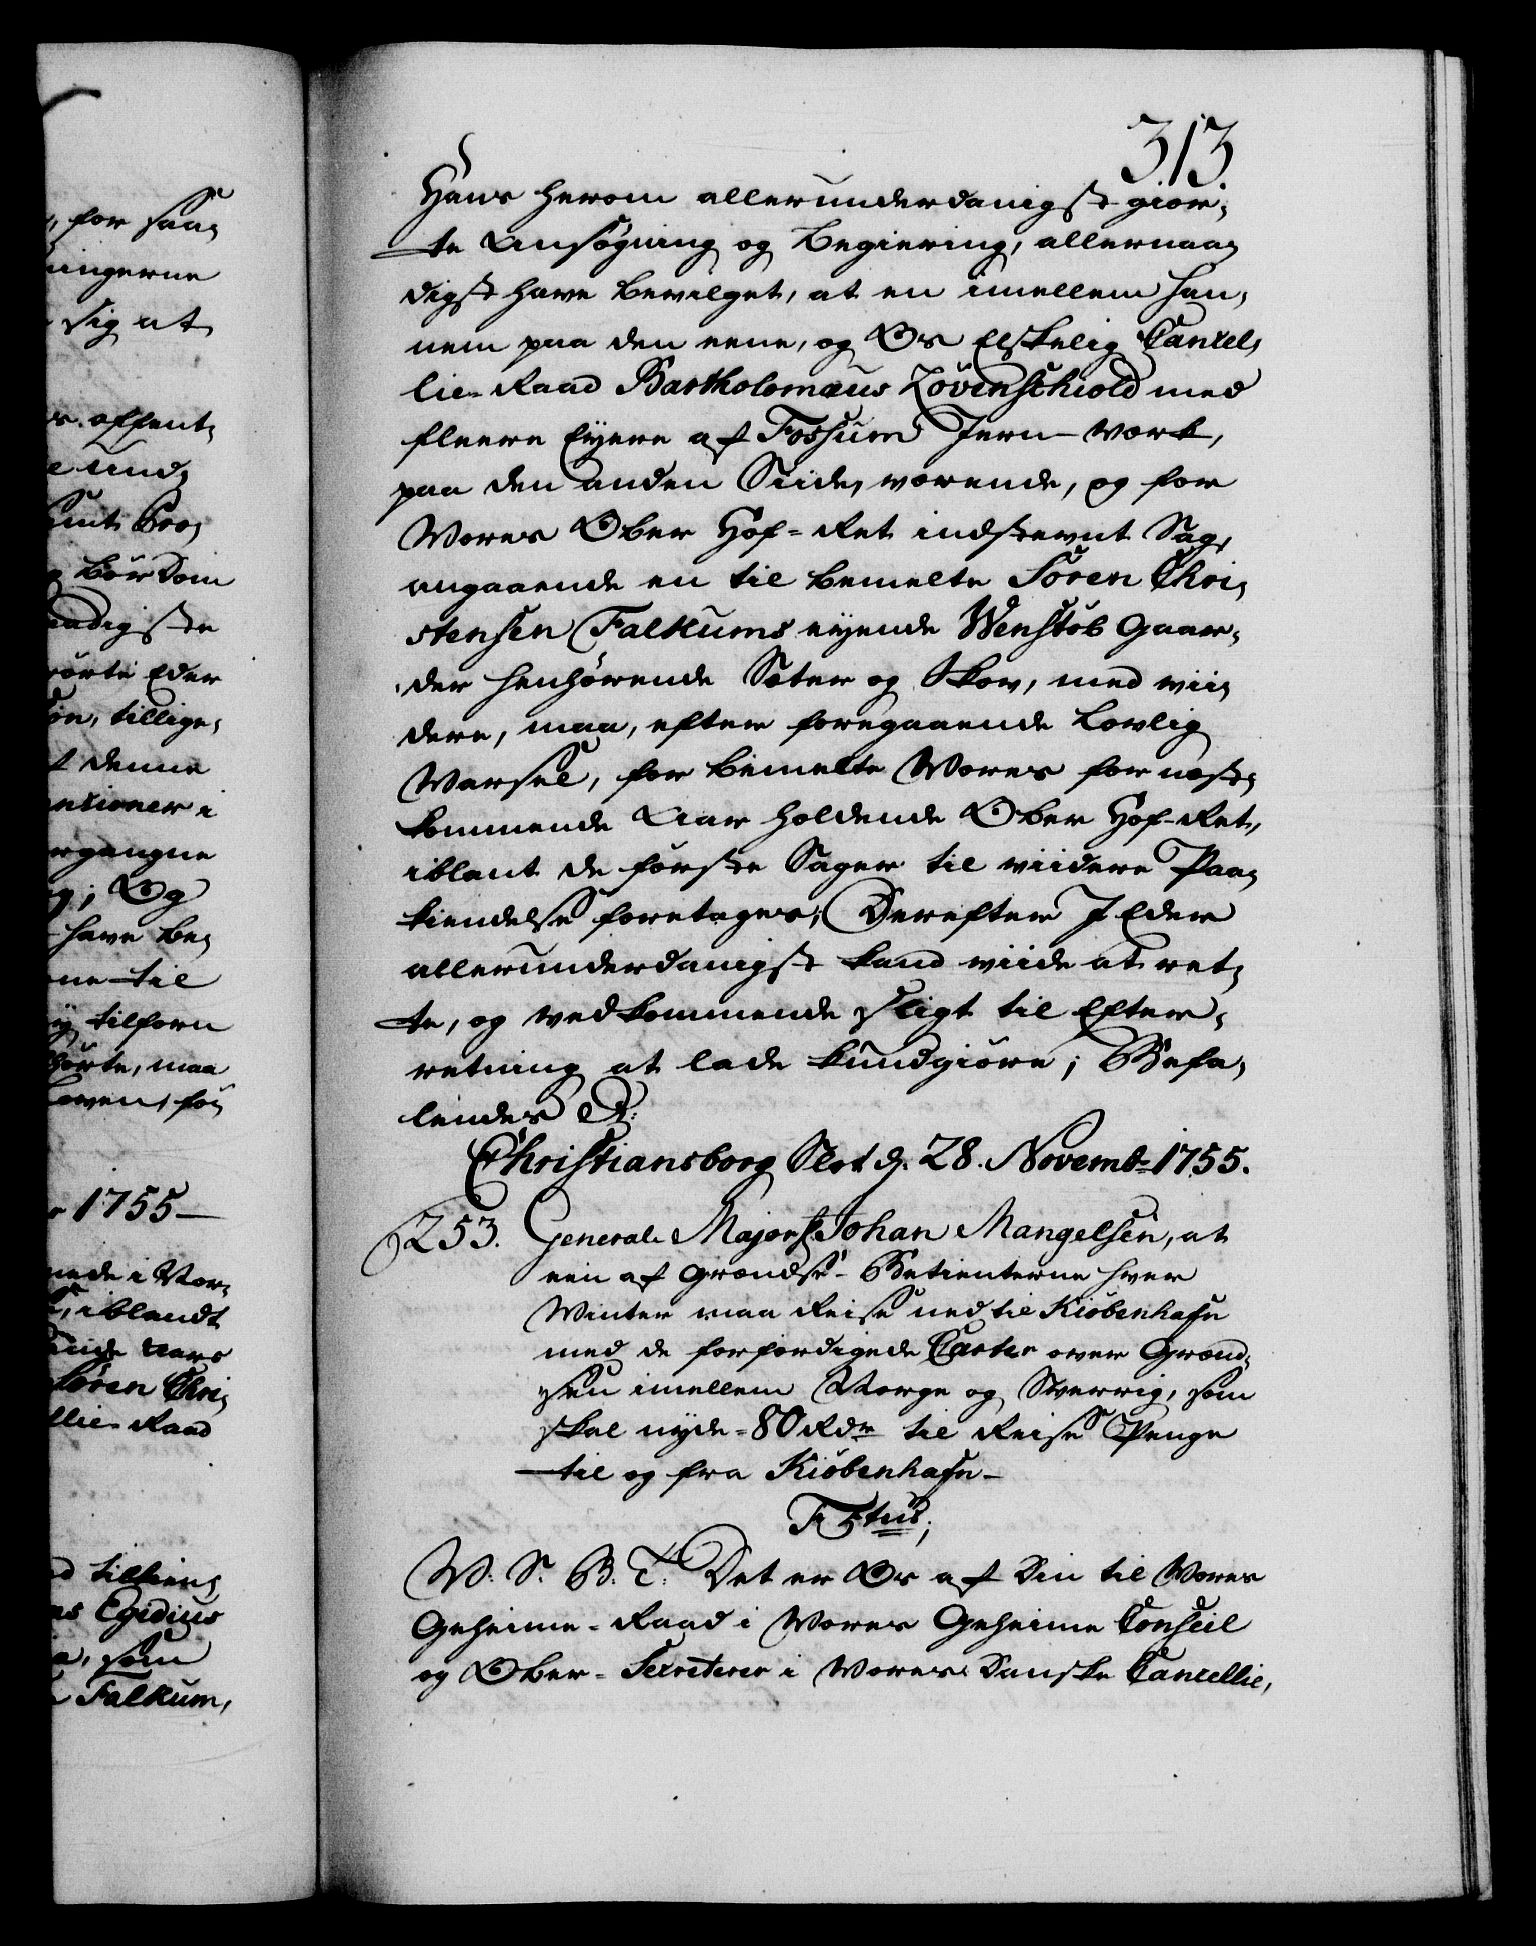 313.
Hans herom allerunderdanigst giør,
te Ansøgning og Begiering, allernaa,
digst have bevilget, at en imellem han,
nem paa den eene, og Os Elskelig Cancel,
lie-Raad Bartholomæus Løvenschiold med
fleere Eyere af Fossum Jern-Værk,
paa den anden Siide, værende, og for
Vores Ober Hof-Ret indstevnt Sag,
angaaende en til bemelte Søren Chri,
stensen Falkums eyende Wenstøb Gaar,
der henhørende Sæter og Skov, med vii,
dere, maa, efter foregaaende Lovlig
Varsel, for bemelte Vores for næst,
kommende Aar holdende Ober Hof-Ret,
iblant de første Sager til viidere Paa,
kiendelse foretages; Derefter I Eder
allerunderdanigst kand viide at ret,
te, og vedkommende sligt til Efter,
retning at lade kundgiøre; Befa,
lendes &:
Christiansborg Slot d. 28. Novembr 1755.
253. General-Major Johan Mangelsen, at
een af Grændse-Betienterne hver
Winter maa Reise ned til Kiøbenhafn
med de forfærdigede Carter over Grænd,
sen imellem Norge og Sverrig, som
skal nyde 80 Rdr til Reise Penge
til og fra Kiøbenhafn-
F 5tus;
V. S. G. T. Det er Os af Din til Vores
Geheime-Raad i Vores Geheime Conseil
og Ober-Secreterer i Vores Danske Cancellie,
, for saa,
ningerne
sig at
offent,
und,
bør Dom
Eder
, tillige,
denne
; Og
have be,
til
tilforn
, maa
1755-
i Nor,
, iblandt
Aars
Søren Chri,
Raad
Egidius
, som
Falkum,